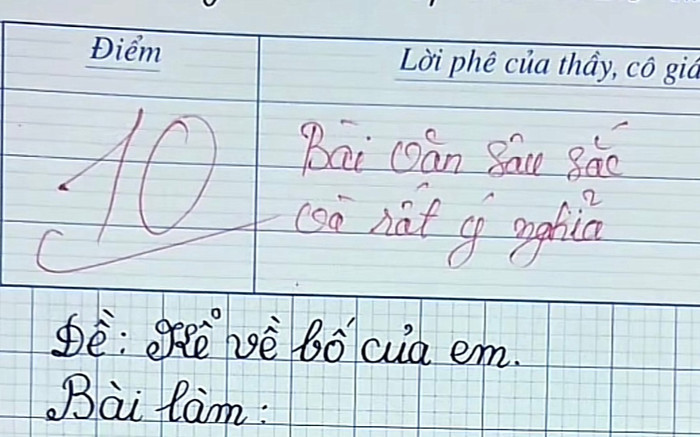 Điểm
Lời phê của thầy, cô giá
10
Bài văn sâu sắc
và rất ý nghĩa
Đề: Kể về bố của em.
Bài làm: